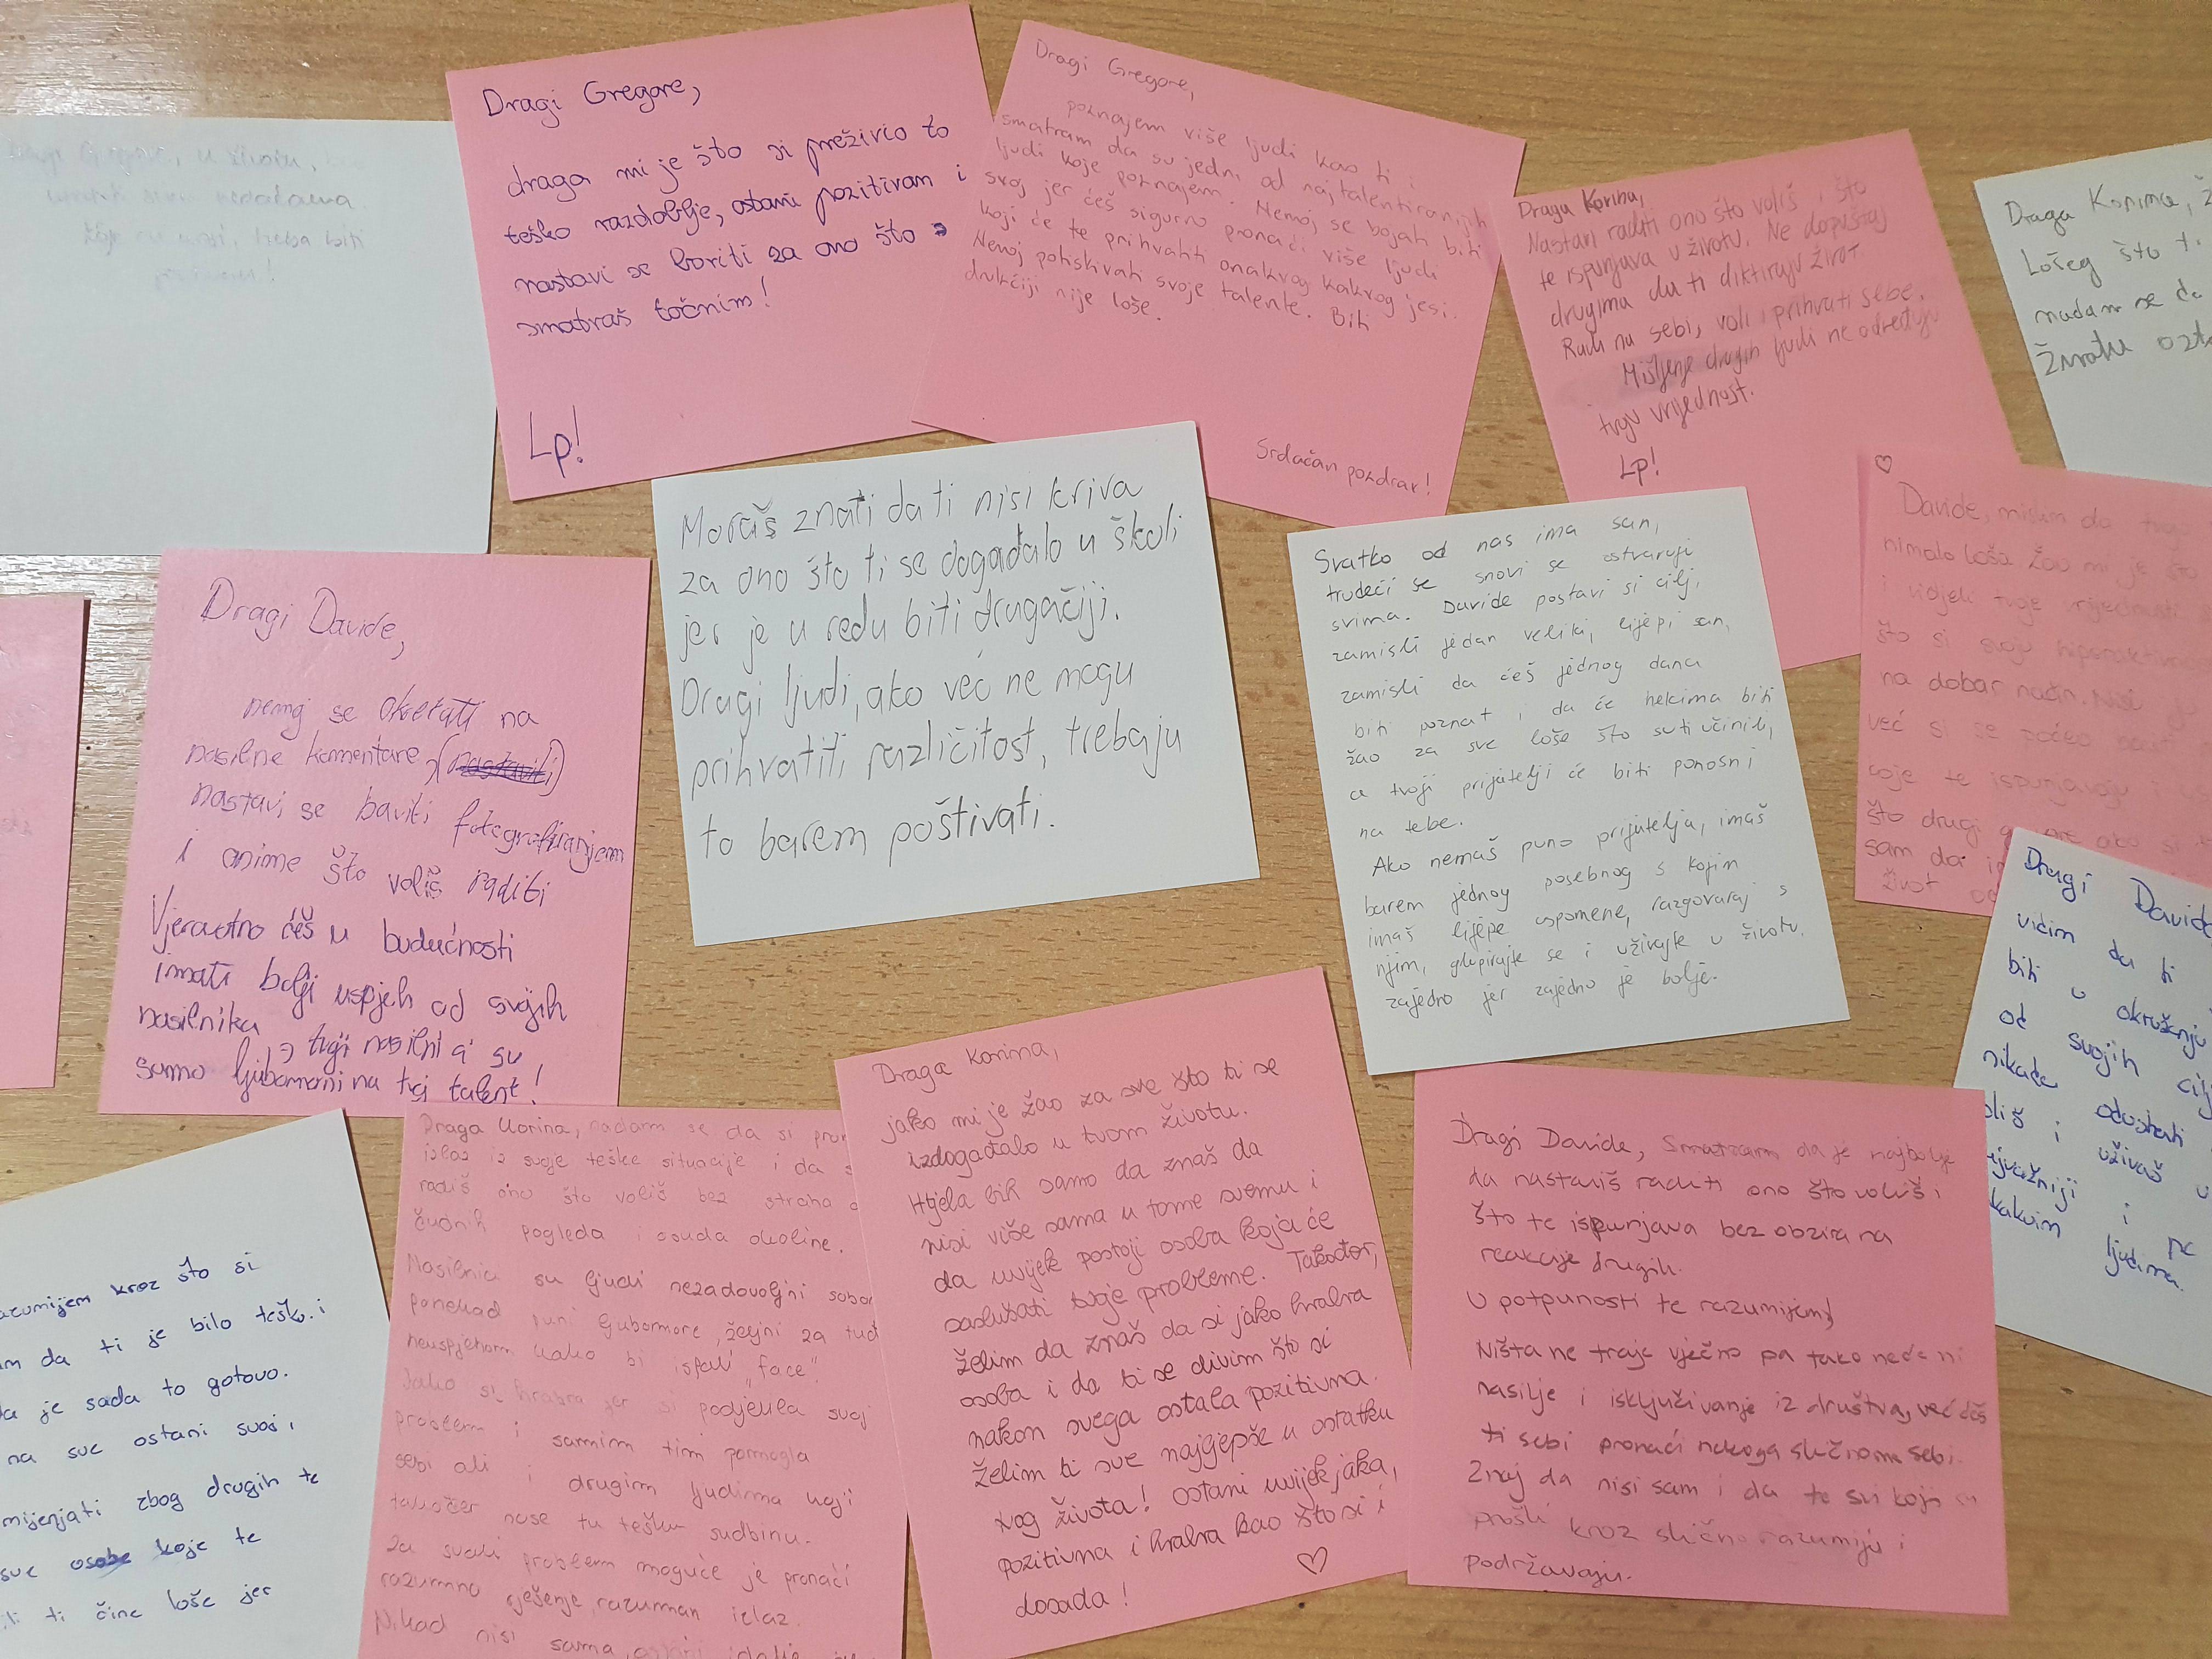 Dragi Gregore,
draga mi je što si preživio to
teško razdoblje, ostani pozitivan i
nastavi se boriti za ono što
smatraš točnim!
Lp!
Dragi Gregore,
poznajem više ljudi kao ti i
smatram da su jedni od najtalentiranijih
ljudi koje poznajem. Nemoj se bojati biti
svoj jer ćeš sigurno pronaći više ljudi
koji će te prihvatiti onakvog kakvog jesi.
Nemoj potiskivati svoje talente. Biti
drukčiji nije loše.
Srdačan pozdrav!
Draga Korina,
Nastavi raditi ono što voliš i što
te ispunjava u životu. Ne dopuštaj
drugima da ti diktiraju život.
Radi na sebi, voli i prihvati sebe.
Mišljenje drugih ljudi ne određuju
tvoju vrijednost.
Lp!
Draga Korina, ž
Lošeg što t
nadam se da
Životu ost
u životu,
treba biti
Dragi Davide,
nemoj se okretati na
nasilne komentare,
nastavi se baviti fotografiranjem
i onime što voliš raditi
Vjeravtno ćeš u budućnosti
imati bolji uspjeh od svojih
nasilnika
→ tvoji nasilnici su
samo ljubomorni na tvoj talent!
Moraš znati da ti nisi kriva
za ono što ti se događalo u školi
jer je u redu biti drugačiji.
Drugi ljudi, ako već ne mogu
prihvatiti različitost, trebaju
to barem poštivati.
Svatko od nas ima san,
trudeći se snovi se ostvaruju
svima. Davide postavi si cilj,
zamisli jedan veliki, lijepi san,
zamisli da ćeš jednog dana
biti poznat i da će nekima biti
žao za sve loše što su ti učinili,
a tvoji prijatelji će biti ponosni
na tebe.
Ako nemaš puno prijatelja, imaš
barem jednog posebnog s kojim
imaš lijepe uspomene, razgovaraj s
njim, glupirajte se i uživajte u životu.
zajedno jer zajedno je bolje.
♡
Davide, mislim da tvoja
nimalo loša. Žao mi je što
i vidjeli tvoje vrijednosti
što si svoju hiperaktivno
na dobar način. Nisi
već si se počeo
koje te ispunjavaju i
što drugi
sam da
život
Dragi Davide
vidim da ti
biti u okruženju
od svojih cilj
nikada odustati
oliš i uživaš u
ne
kakvim ljudima
azumijem kroz što si
m da ti je bilo teško i
da je sada to gotovo.
na sve ostani svoj i
mijenjati zbog drugih te
sve osobe koje te
ili ti čine loše jer
Draga Korina, nadam se da si pron
izlaz iz svoje teške situacije i da s
radiš ono što voliš bez straha o
čudnih pogleda i osuda okoline.
Nasilnici su ljudi nezadovoljni sobo
ponekad puni ljubomore, željni za tuđ
neuspjehom kako bi ispali "face".
Jako si hrabra jer si podjelila svoj
problem i samim tim pomogla
sebi ali i drugim ljudima koji
također nose tu tešku sudbinu.
Za svaki problem moguće je pronaći
razumno rješenje, razuman izlaz.
Nikad nisi sama, ostani
Draga Korina,
jako mi je žao za sve što ti se
izdogađalo u tvom životu.
Htjela bih samo da znaš da
nisi više sama u tome svemu i
da uvijek postoji osoba koja će
saslušati tvoje probleme. Također,
želim da znaš da si jako hrabra
osoba i da ti se divim što si
nakon svega ostala pozitivna.
Želim ti sve najljepše u ostatku
tvog života! Ostani uvijek jaka,
pozitivna i hrabra kao što si i
dosada!
♡
Dragi Davide, Smatram da je najbolje
da nastaviš raditi ono što voliš i
što te ispunjava bez obzira na
reakcije drugih.
U potpunosti te razumijem!
Ništa ne traje vječno pa tako neće ni
nasilje i isključivanje iz društva, već ćeš
ti sebi pronaći nekoga sličnome sebi.
Znaj da nisi sam i da te svi koji su
prošli kroz slično razumiju i
podržavaju.